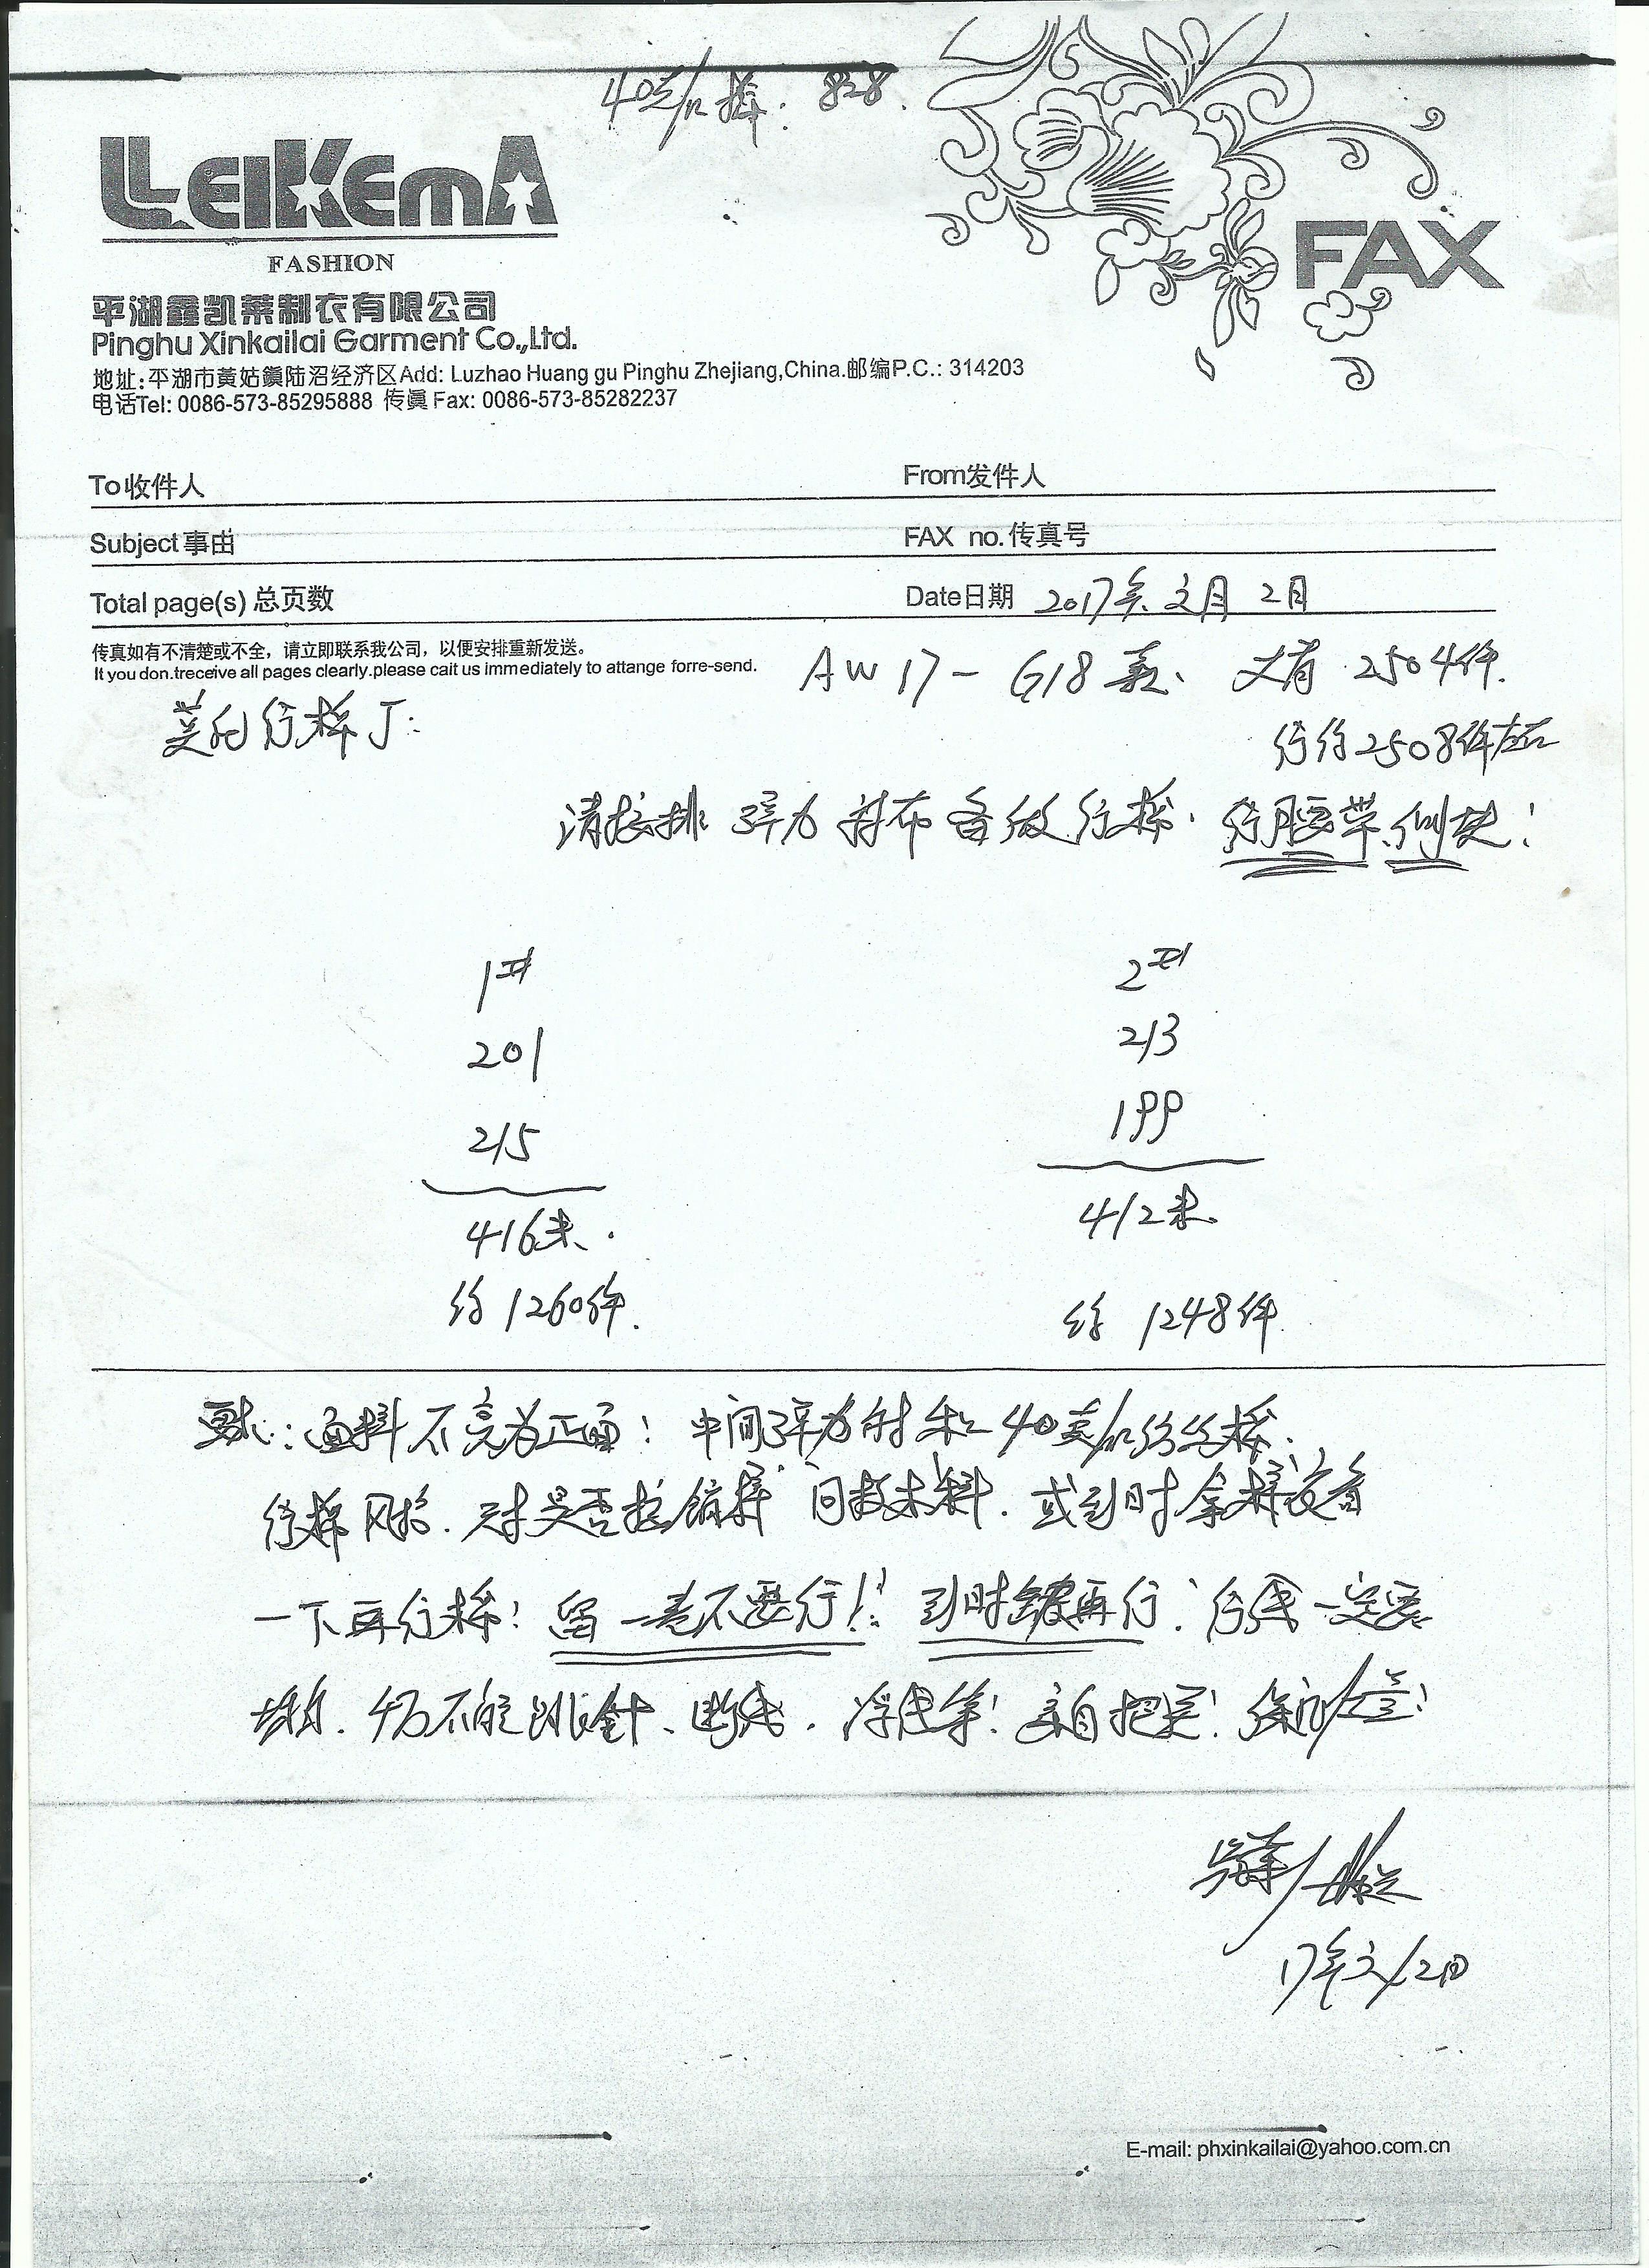 40g/㎡ 棉. 828.
LEIKEMA
FASHION
FAX
平湖鑫凯莱制衣有限公司
Pinghu Xinkailai Garment Co.,Ltd.
地址:平湖市黄姑鎮陆沼经济区Add: Luzhao Huang gu Pinghu Zhejiang,China.邮编P.C.: 314203
电话Tel: 0086-573-85295888 传真 Fax: 0086-573-85282237
To收件人 From发件人
Subject事由 FAX no.传真号
Total page(s) 总页数 Date日期 2017年 月 2日
传真如有不清楚或不全，请立即联系我公司，以便安排重新发送。
It you don.treceive all pages clearly.please cait us immediately to attange forre-send.
AW17-G18款、 2504件.
行棉厂:
行约2508件左右
请按排 弹力衬布 各做行棉. 行腰带.侧块!
1# 2#
201 213
215 199
416米. 412米.
约 1260件. 约 1248件.
要求: 面料不亮为正面! 中间弹力衬和40g/㎡ 棉.
行棉 . 是否按 样 问技术科. 或到时拿样衣看
一下再行棉! 留一 不要行!! 到时 再行! 行线一定要
. 切不能跳针、断线. 浮线等! !
17年 /2日
E-mail: phxinkailai@yahoo.com.cn